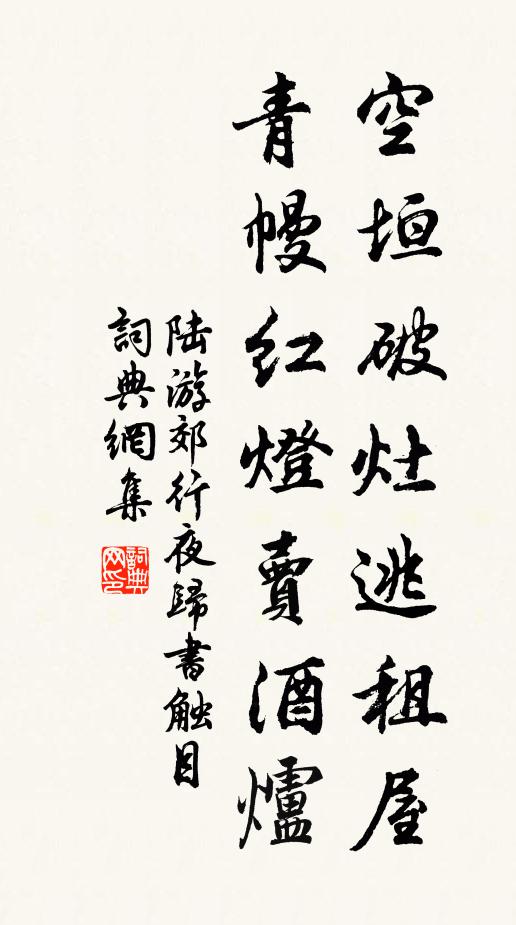 空垣破灶逃租屋
青幔红燈賣酒爐
陆游郊行夜歸書触目
詞典網集
詞典网印